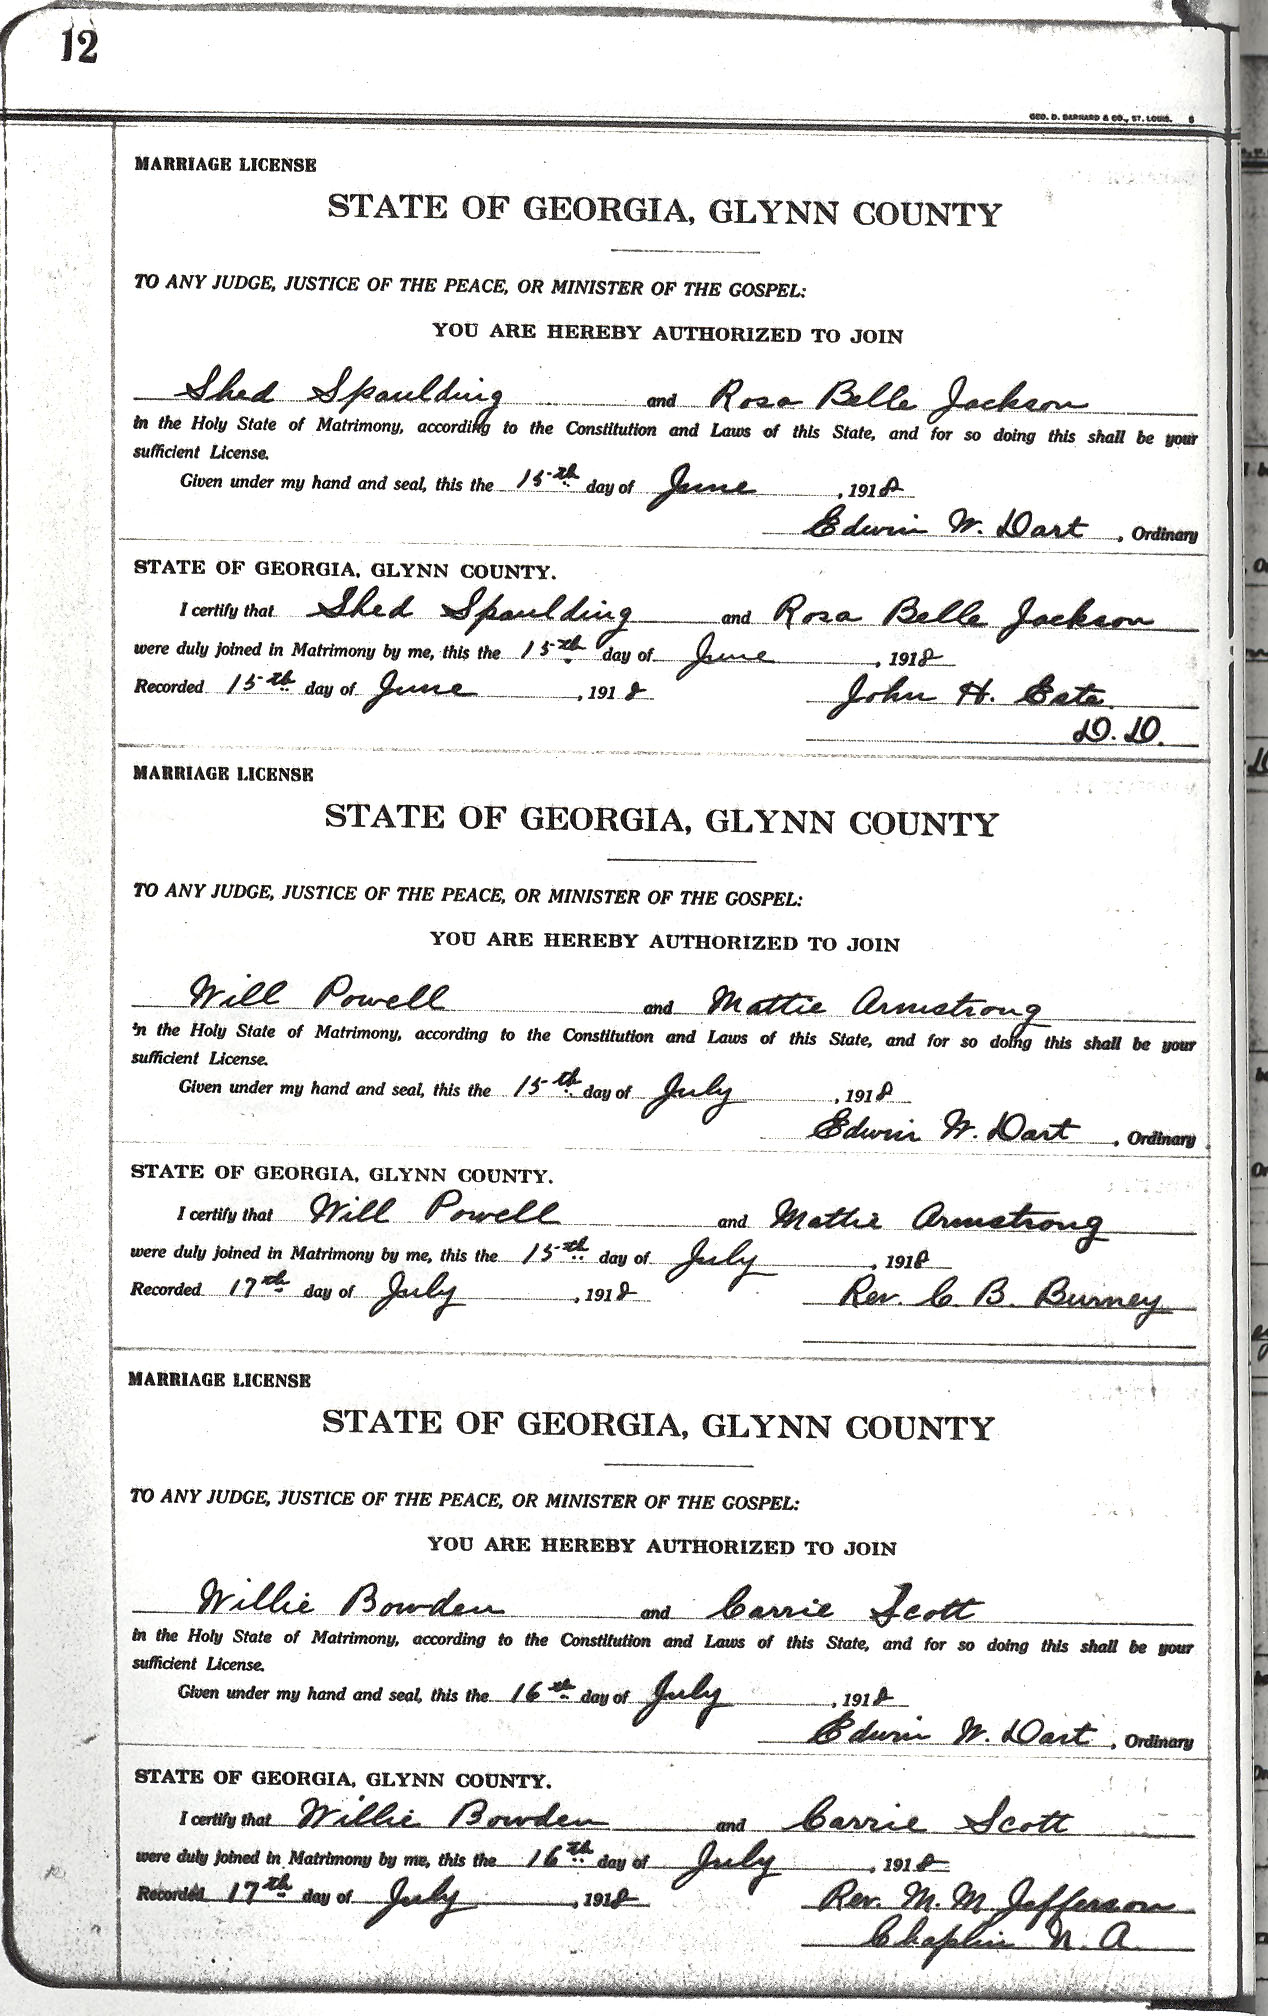 12
GEO. D. BARNARD & CO., ST. LOUIS. 6
MARRIAGE LICENSE
STATE OF GEORGIA, GLYNN COUNTY
TO ANY JUDGE, JUSTICE OF THE PEACE, OR MINISTER OF THE GOSPEL:
YOU ARE HEREBY AUTHORIZED TO JOIN
Shed Spaulding and Rosa Belle Jackson
in the Holy State of Matrimony, according to the Constitution and Laws of this State, and for so doing this shall be your
sufficient License.
Given under my hand and seal, this the 15th day of June, 1918
Edwin W. Dart, Ordinary
STATE OF GEORGIA, GLYNN COUNTY.
I certify that Shed Spaulding and Rosa Belle Jackson
were duly joined in Matrimony by me, this the 15th day of June, 1918
Recorded 15th day of June, 1918 John H. Este
D. D.
MARRIAGE LICENSE
STATE OF GEORGIA, GLYNN COUNTY
TO ANY JUDGE, JUSTICE OF THE PEACE, OR MINISTER OF THE GOSPEL:
YOU ARE HEREBY AUTHORIZED TO JOIN
Will Powell and Mattie Armstrong
in the Holy State of Matrimony, according to the Constitution and Laws of this State, and for so doing this shall be your
sufficient License.
Given under my hand and seal, this the 15th day of July, 1918
Edwin W. Dart, Ordinary
STATE OF GEORGIA, GLYNN COUNTY.
I certify that Will Powell and Mattie Armstrong
were duly joined in Matrimony by me, this the 15th day of July, 1918
Recorded 17th day of July, 1918 Rev. C. B. Burney
MARRIAGE LICENSE
STATE OF GEORGIA, GLYNN COUNTY
TO ANY JUDGE, JUSTICE OF THE PEACE, OR MINISTER OF THE GOSPEL:
YOU ARE HEREBY AUTHORIZED TO JOIN
Willie Bowden and Carrie Scott
in the Holy State of Matrimony, according to the Constitution and Laws of this State, and for so doing this shall be your
sufficient License.
Given under my hand and seal, this the 16th day of July, 1918
Edwin W. Dart, Ordinary
STATE OF GEORGIA, GLYNN COUNTY.
I certify that Willie Bowden and Carrie Scott
were duly joined in Matrimony by me, this the 16th day of July, 1918
Recorded 17th day of July, 1918 Rev. M. M. Jefferson
Chaplin N. A.